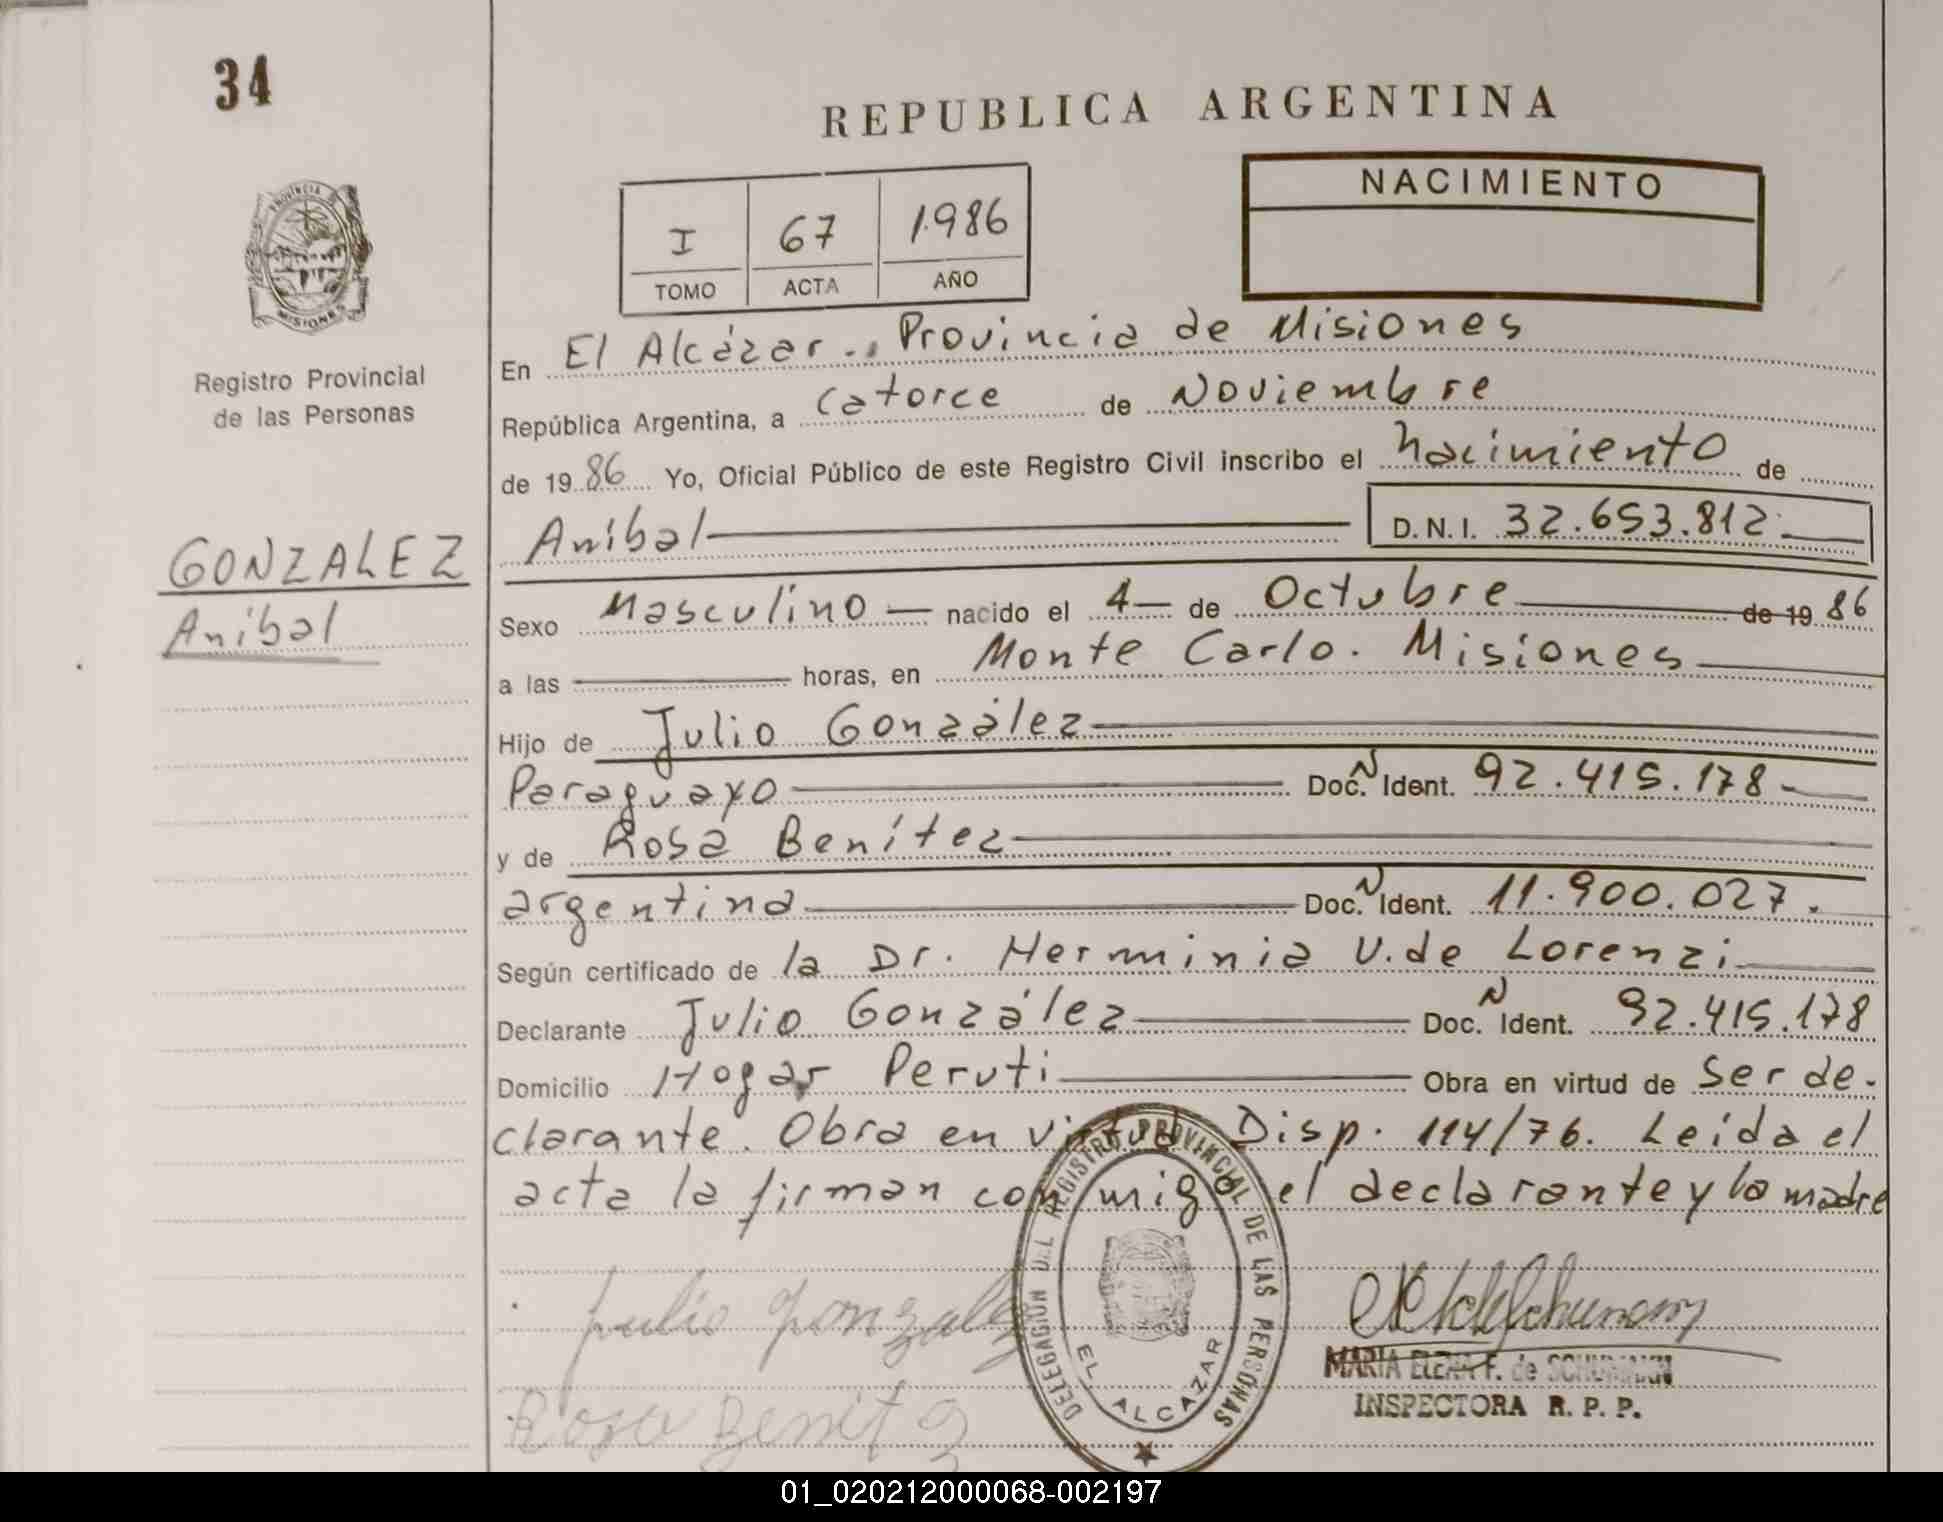 34
REPUBLICA ARGENTINA
NACIMIENTO
I 67 1.986
TOMO ACTA AÑO
PROVINCIA
MISIONES
Registro Provincial
de las Personas
GONZALEZ
Aníbal
En El Alcázar., Provincia de Misiones
República Argentina, a catorce de Noviembre
de 19 86 Yo, Oficial Público de este Registro Civil inscribo el nacimiento de
Aníbal D.N.I. 32.653.812
Sexo Masculino nacido el 4 de Octubre de 19 86
a las horas, en Monte Carlo. Misiones
Hijo de Julio González
Paraguayo Doc. N Ident. 92.415.178
y de Rosa Benítez
argentina Doc. N Ident. 11.900.027.
Según certificado de la Dr. Herminia U. de Lorenzi
Declarante Julio González Doc. N Ident. 92.415.178
Domicilio Hogar Peruti Obra en virtud de ser de-
clarante. Obra en virtud Disp. 114/76. Leída el
acta la firman conmigo el declarante y la madre
julio gonzalez
Rosa Benitez
DELEGACION DEL REGISTRO PROVINCIAL DE LAS PERSONAS
EL ALCAZAR
MARIA ELENA F. de SCHUMANN
INSPECTORA R. P. P.
01_020212000068-002197